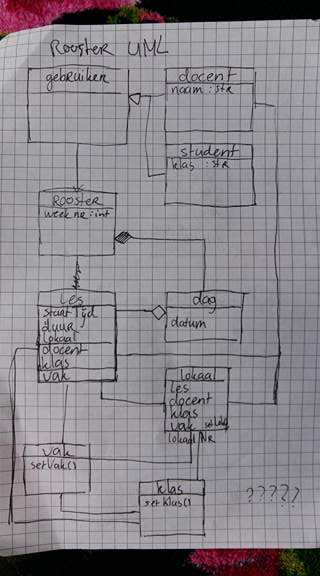 Rooster UML
gebruiker
docent
naam : str
student
klas : str
Rooster
week nr : int
les
start tijd
duur
lokaal
docent
klas
vak
dag
datum
lokaal
les
docent
klas
vak
lokaal NR
vak
setVak()
klas
setKlas()
?????